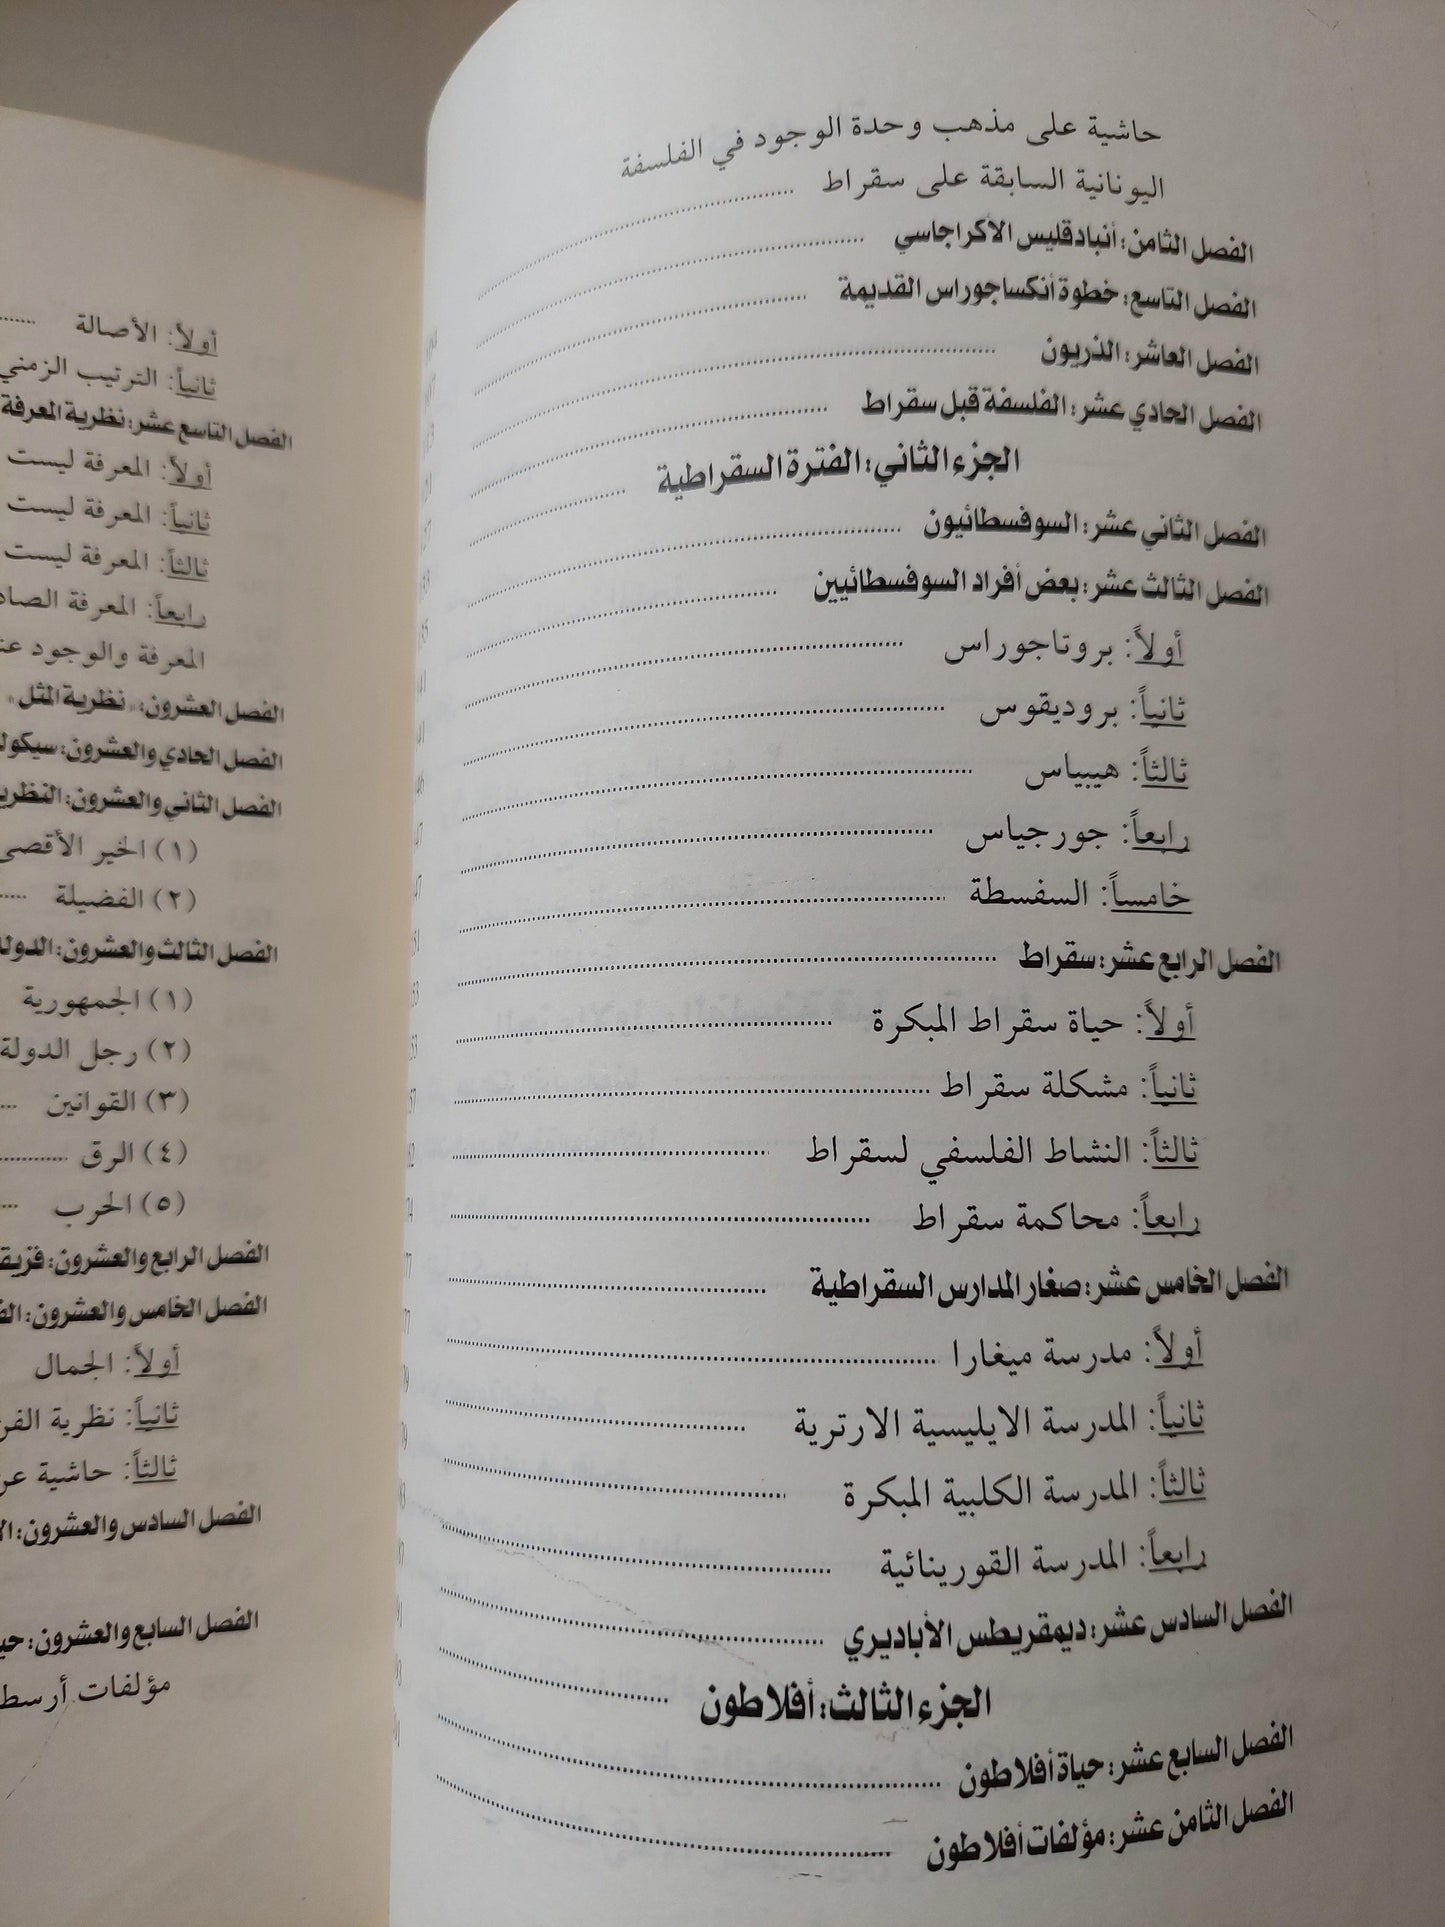 حاشية على مذهب وحدة الوجود في الفلسفة
اليونانية السابقة على سقراط
الفصل الثامن: أنبادقليس الأكراجاسي
الفصل التاسع: خطوة أنكساجوراس القديمة
الفصل العاشر: الذريون
الفصل الحادي عشر: الفلسفة قبل سقراط
الجزء الثاني: الفترة السقراطية
الفصل الثاني عشر: السوفسطائيون
الفصل الثالث عشر: بعض أفراد السوفسطائيين
أولاً: بروتاجوراس
ثانياً: بروديقوس
ثالثاً: هيبياس
رابعاً: جورجياس
خامساً: السفسطة
الفصل الرابع عشر: سقراط
أولاً: حياة سقراط المبكرة
ثانياً: مشكلة سقراط
ثالثاً: النشاط الفلسفي لسقراط
رابعاً: محاكمة سقراط
الفصل الخامس عشر: صغار المدارس السقراطية
أولاً: مدرسة ميغارا
ثانياً: المدرسة الايليسية الارترية
ثالثاً: المدرسة الكلبية المبكرة
رابعاً: المدرسة القورينائية
الفصل السادس عشر: ديمقريطس الأباديري
الجزء الثالث: أفلاطون
الفصل السابع عشر: حياة أفلاطون
الفصل الثامن عشر: مؤلفات أفلاطون
أولاً: الأصالة
ثانياً: الترتيب الزمني
الفصل التاسع عشر: نظرية المعرفة
أولاً: المعرفة ليست
ثانياً: المعرفة ليست
ثالثاً: المعرفة ليست
رابعاً: المعرفة
المعرفة والوجود
الفصل العشرون: «نظرية المثل»
الفصل الحادي والعشرون:
الفصل الثاني والعشرون:
(١) الخير الأقصى
(٢) الفضيلة
الفصل الثالث والعشرون:
(١) الجمهورية
(٢) رجل الدولة
(٣) القوانين
(٤) الرق
(٥) الحرب
الفصل الرابع والعشرون:
الفصل الخامس والعشرون:
أولاً: الجمال
ثانياً: نظرية
ثالثاً: حاشية
الفصل السادس والعشرون:
الفصل السابع والعشرون:
مؤلفات